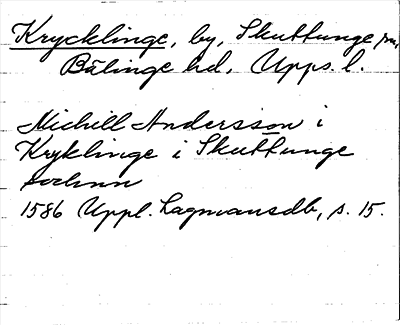 Krycklinge, by, Skuttunge sn,
Bälinge hd, Upps. l.
Michill Andersson i
Kryklinge i Skuttunge
sochnn
1586 Uppl. Lagmansdb, s. 15.